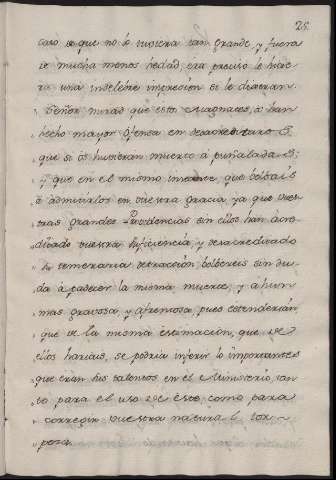 25.
caso de que no lo tuviera tan grande, y fuera
de mucha menos hedad, era preciso le hicie
ra una indeleble impresion si le dixeran.
Señor mirad que estos Magnates, os han
hecho mayor ofensa en desacreditaros
que si os huvieran muerto à puñaladas;
y que en el mismo instante, que bolbais
à admitirlos en vuestra gracia, ya que vues
tras grandes Providencias sin ellos han acre
ditado vuestra suficiencia, y desacreditado
su temeraria detraccion bolbereis sin du
da à padecer la misma muerte, y ahun
mas gravosa y afrentosa, pues entenderian
que de la misma estimacion, que de
ellos hariais, se podria inferir lo importantes
que eran sus talentos en el Ministerio, tan
to para el uso de este como para
corregir vuestra natural tor-
peza.